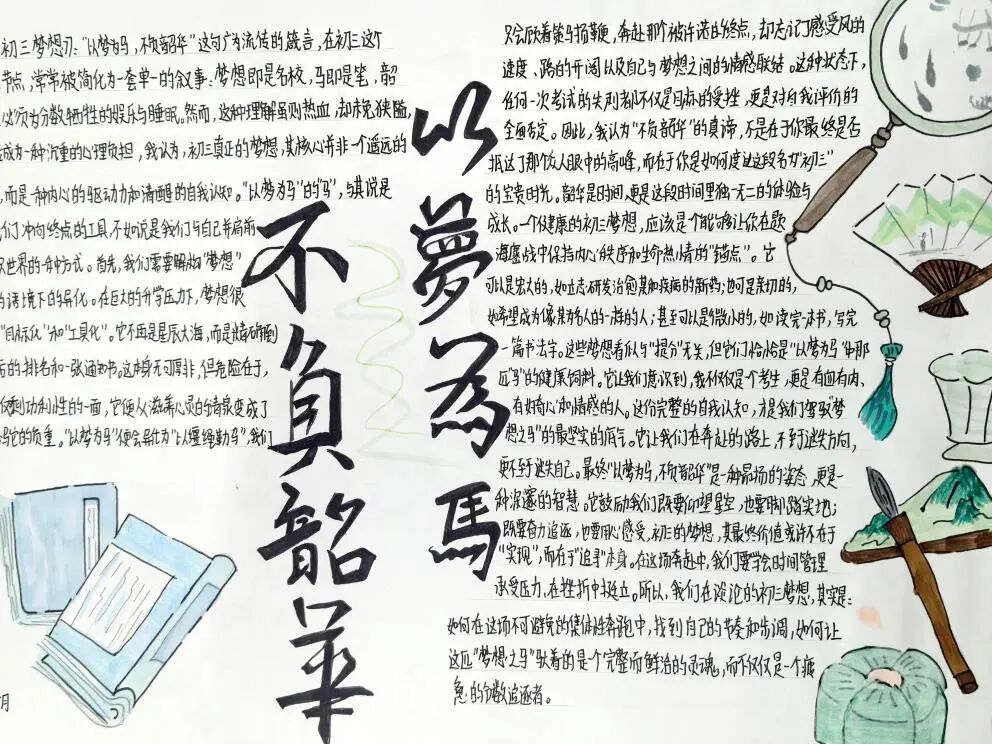 以夢為馬
不負韶華
初三梦想刀："以梦为马，不负韶华"这句广为流传的箴言，在初三这个
节点，常常被简化为一套单一的叙事：梦想即是名校，马即是笔，韶
必须为分数牺牲的娱乐与睡眠。然而，这种理解虽则热血，却未免狭隘，
成为一种沉重的心理负担，我认为，初三真正的梦想，其核心并非一个遥远的
，而是一种内心的驱动力和清醒的自我认知。"以梦为马"的"马"，与其说是
们冲向终点的工具，不如说是我们与自己并肩前
世界的一种方式。首先，我们需要解构"梦想"
语境下的异化。在巨大的升学压力下，梦想很
"目标化"和"工具化"。它不再是星辰大海，而是精确到
后的排名和一张通知书。这本身无可厚非，但危险在于，
剩功利性的一面，它便从滋养心灵的清泉变成了
的负重。"以梦为马"便会异化为"以缰绳勒马"，我们
月
只会顾着策马扬鞭，奔赴那个被许诺的终点，却忘记了感受风的
速度、路的开阔以及自己与梦想之间的情感联结。这种状态下，
任何一次考试的失利都不仅是目标的受挫，更是对自我评价的
全面否定。因此，我认为"不负韶华"的真谛，不是在于你最终是否
抵达了那个众人眼中的高峰，而在于你是如何度过这段名为"初三"
的宝贵时光。韶华是时间，更是这段时间里独一无二的体验与
成长。一个健康的初三梦想，应该是个能够让你在题
海鏖战中保持内心秩序和生命热情的"锚点"。它
可以是宏大的，如立志研发治愈某种疾病的新药；也可是亲切的，
如希望成为像某为名人的一样的人；甚至可以是微小的，如读完一本书，写完
一篇书法字。这些梦想看似与"提分"无关，但它们恰恰是"以梦为马"中那
匹"马"的健康饲料。它让我们意识到，我不仅仅是个考生，更是有血有肉、
有好奇心和情感的人。这份完整的自我认知，才是我们驾驭"梦
想之马"的最坚实的底气。它让我们在奔赴的路上，不至于迷失方向，
更不至于迷失自己。最终"以梦为马，不负韶华"是一种昂扬的姿态，更是一
种深邃的智慧。它鼓励我们既要仰望星空，也要脚踏实地；
既要奋力追逐，也要用心感受。初三的梦想，其最终价值或许不在于
"实现"，而在于"追寻"本身。在这场奔赴中，我们要学会时间管理
承受压力，在挫折中挺立。所以，我们在谈论的初三梦想，其实是：
如何在这场不可避免的集体性奔跑中，找到自己的节奏和步调，如何让
这匹"梦想之马"驮着的是个完整而鲜活的灵魂，而不仅仅是一个疲
惫的分数追逐者。